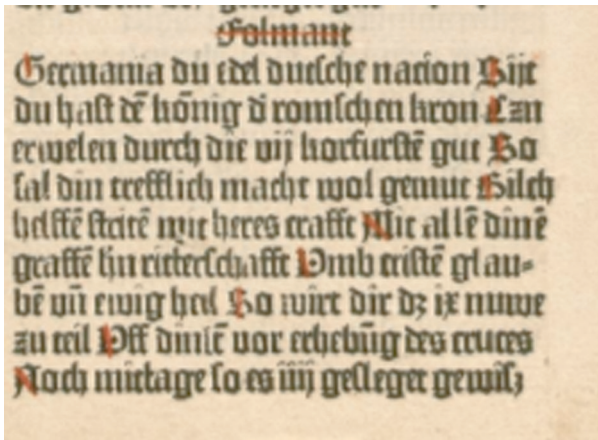 Folmant
Germania du edel dutsche nacion Sijt
du hast dē kōnig d̄ romschen kron Czu
erwelen durch die vij korfurstē gut So
sal din trefflich macht wol gemut Silch
helffē stritē mit heres crafft Mit allē dinē
graffē vn̄ ritterschafft Vmb cristē glau⸗
bē vn̄ ewig heil So wirt dir dz ix nuwe
zu teil Vff dinſtē vor erhebūg des cruces
Noch mittage so es iiij gesleget gewisz